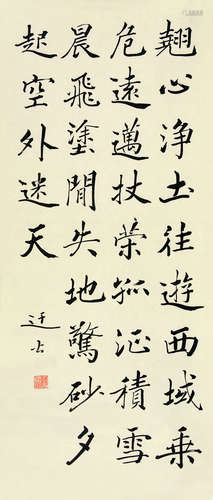 翹心净土往遊西域乘
危遠邁杖策孤征積雪
晨飛塗間失地驚砂夕
起空外迷天